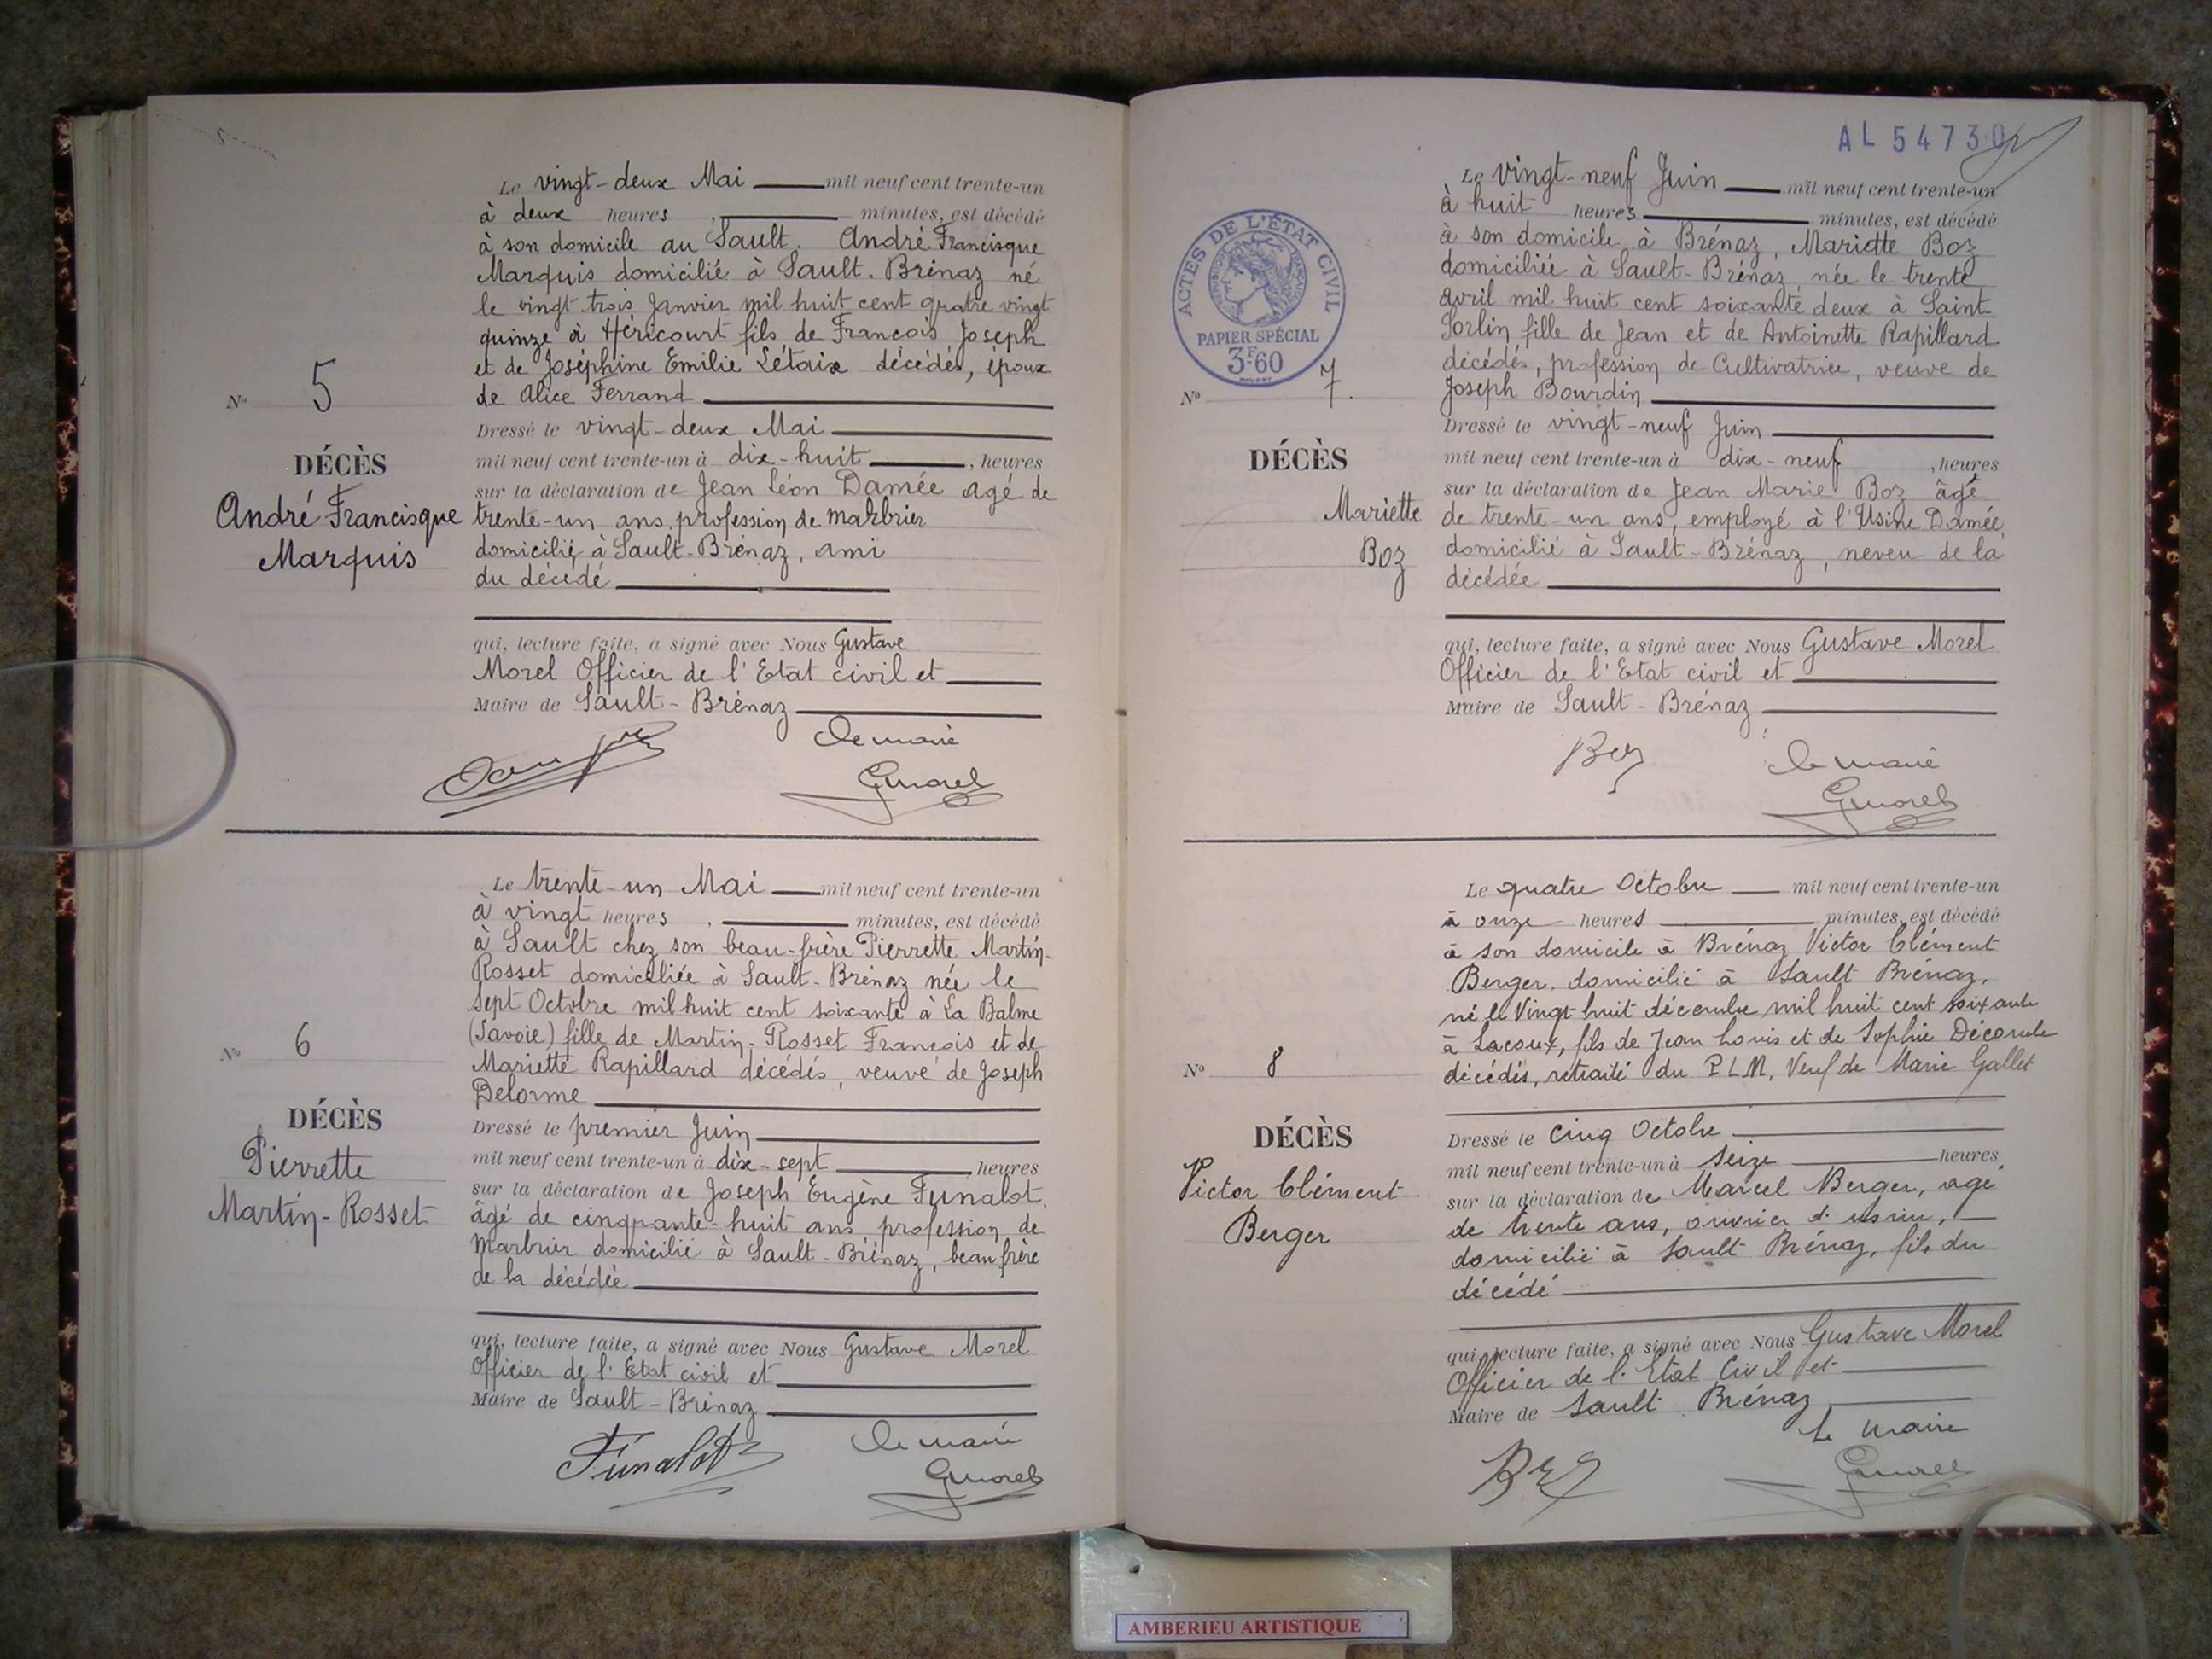 Le vingt-deux Mai mil neuf cent trente-un
à deux heures minutes, est décédé
à son domicile au Sault. André Francisque
Marquis domicilié à Sault-Brénaz né
le vingt trois Janvier mil huit cent quatre vingt
quinze à Héricourt fils de Francois Joseph
et de Joséphine Emilie Létaix décédés, époux
de Alice Ferrand
Dressé le vingt-deux Mai
mil neuf cent trente-un à dix-huit, heures
sur la déclaration de Jean Léon Damée agé de
trente-un ans, profession de marbrier
domicilié à Sault-Brénaz, ami
du décédé
qui, lecture faite, a signé avec Nous Gustave
Morel Officier de l'Etat civil et
Maire de Sault-Brénaz
Le maire
Gmorel
No 5
DÉCÈS
André Francisque
Marquis
Le trente-un Mai mil neuf cent trente-un
à vingt heures minutes, est décédé
à Sault chez son beau-frère Pierrette Martin-
Rosset domiciliée à Sault-Brénaz née le
sept Octobre mil huit cent soixante à La Balme
(Savoie) fille de Martin-Rosset Francois et de
Mariette Rapillard décédés, veuve de Joseph
Delorme
Dressé le premier Juin
mil neuf cent trente-un à dix-sept heures
sur la déclaration de Joseph Eugène Funalot,
âgé de cinquante-huit ans profession de
Marbrier domicilié à Sault-Brénaz, beau frère
de la décédée
qui, lecture faite, a signé avec Nous Gustave Morel
Officier de l'Etat civil et
Maire de Sault-Brénaz
Funalot
Le maire
Gmorel
No 6
DÉCÈS
Pierrette
Martin-Rosset
AL 54730
ACTES DE L'ÉTAT CIVIL
PAPIER SPÉCIAL
3F60
Le vingt-neuf Juin mil neuf cent trente-un
à huit heures minutes, est décédé
à son domicile à Brénaz, Mariette Boz
domiciliée à Sault-Brénaz née le trente
avril mil huit cent soixante deux à Saint-
Sorlin fille de Jean et de Antoinette Rapillard
décédés, profession de Cultivatrice, veuve de
Joseph Bourdin
Dressé le vingt-neuf Juin
mil neuf cent trente-un à dix-neuf, heures
sur la déclaration de Jean Marie Boz âgé
de trente-un ans, employé à l'Usine Damée,
domicilié à Sault-Brénaz, neveu de la
décédée
qui, lecture faite, a signé avec Nous Gustave Morel
Officier de l'Etat civil et
Maire de Sault-Brénaz
Boz
Le maire
Gmorel
No 7.
DÉCÈS
Mariette
Boz
Le quatre Octobre mil neuf cent trente-un
à onze heures minutes, est décédé
à son domicile à Brénaz Victor Clément
Berger, domicilié à Sault Brénaz,
né le Vingt huit décembre mil huit cent soixante
à Lacoux, fils de Jean Louis et de Sophie Décomle
décédés, retraité du P L M, Veuf de Marie Gallet
Dressé le Cinq Octobre
mil neuf cent trente-un à seize heures
sur la déclaration de Marcel Berger, agé
de trente ans, ouvrier d'usine,
domicilié à Sault Brénaz, fils du
décédé
qui, lecture faite, a signé avec Nous Gustave Morel
Officier de l'Etat Civil et
Maire de Sault Brénaz
Le maire
Gmorel
No 8
DÉCÈS
Victor Clément
Berger
AMBERIEU ARTISTIQUE